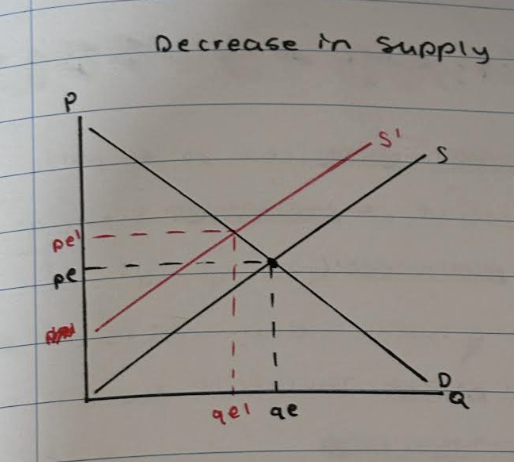 Decrease in supply
P
S'
S
pe'
pe
D
Q
qe'
qe